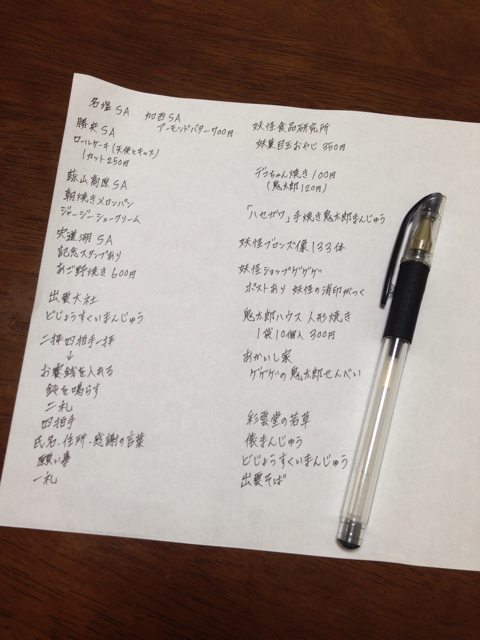 名塩SA 加西SA
アーモンドバター700円
勝央SA
ロールケーキ(天使とキッス)
1カット250円
蒜山高原SA
朝焼きメロンパン
ジャージーシュークリーム
宍道湖SA
記念スタンプあり
あご野焼き600円
出雲大社
どじょうすくいまんじゅう
二拝四拍手一拝
↓
お賽銭を入れる
鈴を鳴らす
二礼
四拍手
氏名、住所、感謝の言葉
願い事
一礼
妖怪食品研究所
妖菓目玉おやじ350円
デコちゃん焼き100円
(鬼太郎120円)
「ハセガワ」手焼き鬼太郎まんじゅう
妖怪ブロンズ像133体
妖怪ショップゲゲゲ
ポストあり 妖怪の消印がつく
鬼太郎ハウス 人形焼き
1袋10個入 300円
おかいし家
ゲゲゲの鬼太郎せんべい
彩雲堂の若草
俵まんじゅう
どじょうすくいまんじゅう
出雲そば